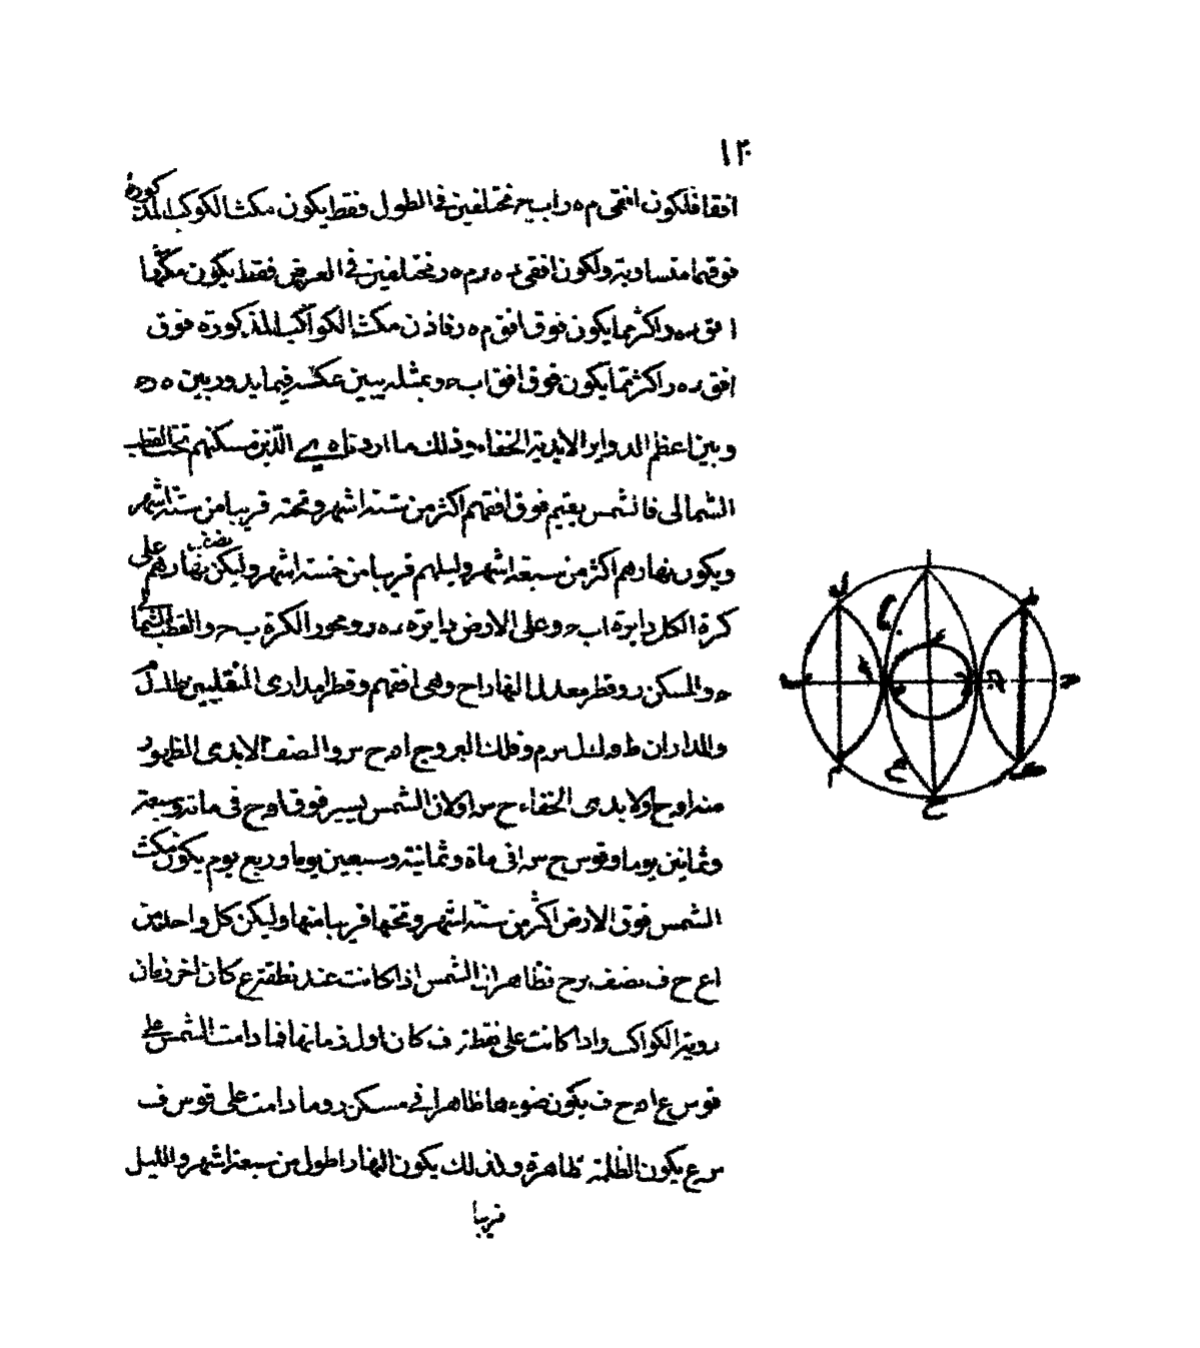 ١٢
افقا فلكون افقى م ه ر اب ح مختلفين فى الطول فقط يكون مكث الكواكب المذكورة
فوقهما متساوية ولكون افقى ه ر م ه ر مختلفين فى العرض فقط يكون مكثها
افق ه ر اكثر مما يكون فوق افق م ه ر فاذن مكث الكواكب المذكورة فوق
افق ه ر اكثر مما يكون فوق افق اب ح وبمثله يبين عكسه فيما يدور بين ه ح
وبين اعظم الدواير الابدية الخفاء وذلك ما اردناه الذين مسكنهم تحت القطب
الشمالى فالشمس يقيم فوق افقهم اكثر من ستة اشهر وتحته قريبا من ستة اشهر
ويكون نهارهم اكثر من سبعة اشهر وليلهم قريبا من خمسة اشهر وليكن نصف نهارهم على
كرة الكل دايرة اب ح وعلى الارض دايرة ه ر ومحور الكرة ب ح والقطب الشمالى
ح والمسكن ر وقطر معدل النهار ا ح وهى افقهم وقطرا مدارى المنقلبين ط ل ك
والمداران وفلك البروج والنصف الابدى الظهور
منه ا ه ح والابدى الخفاء ح س ا ولان الشمس يسير قوس ا ه ح فى مائة وسبعة
وثمانين يوما وقوس ح س ا فى ماة وثمانية وسبعين يوما وربع يوم يكون مكث
الشمس فوق الارض اكثر من ستة اشهر وتحتها قريبا منها وليكن كل واحد من
ا ع ح ف نصف برج فظاهر ان الشمس اذا كانت عند نقطة ع كان اخر زمان
روية الكواكب واذا كانت على نقطة ف كان اول زمانها فما دامت الشمس على
قوس ع ا ه ح ف يكون ضوءها ظاهرا فى مسكن ر وما دامت على قوس ف
س ع يكون الظلمة ظاهرة ولذلك يكون النهار اطول من سبعة اشهر والليل
قريبا
ا
ل
ط
ب
ح
م
ك
ح
ر
ه
ع